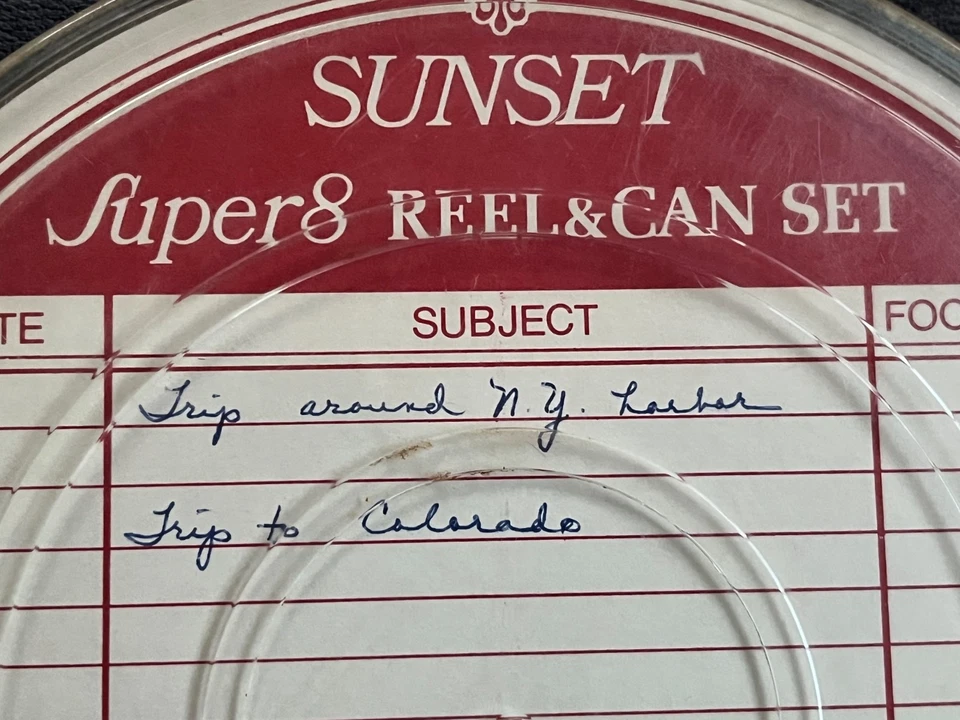 SUNSET
Super8 REEL & CAN SET
TE SUBJECT FOO
Trip around N.Y. harbor
Trip to Colorado